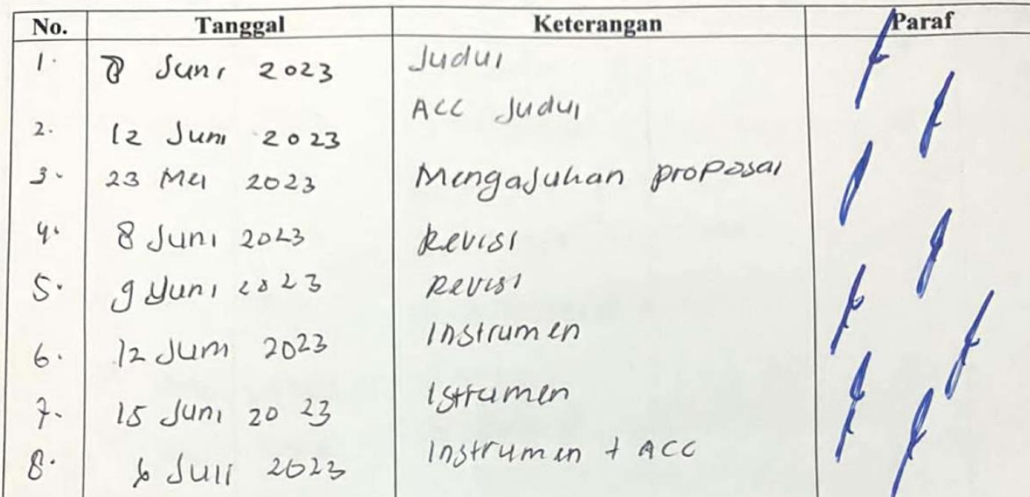 No. Tanggal Keterangan Paraf
1. 8 Juni 2023 Judul
2. 12 Juni 2023 ACC Judul
3. 23 Mei 2023 Mengajukan proposal
4. 8 Juni 2023 Revisi
5. 9 Juni 2023 Revisi
6. 12 Juni 2023 Instrumen
7. 15 Juni 2023 Istrumen
8. 6 Juli 2023 Instrumen + ACC